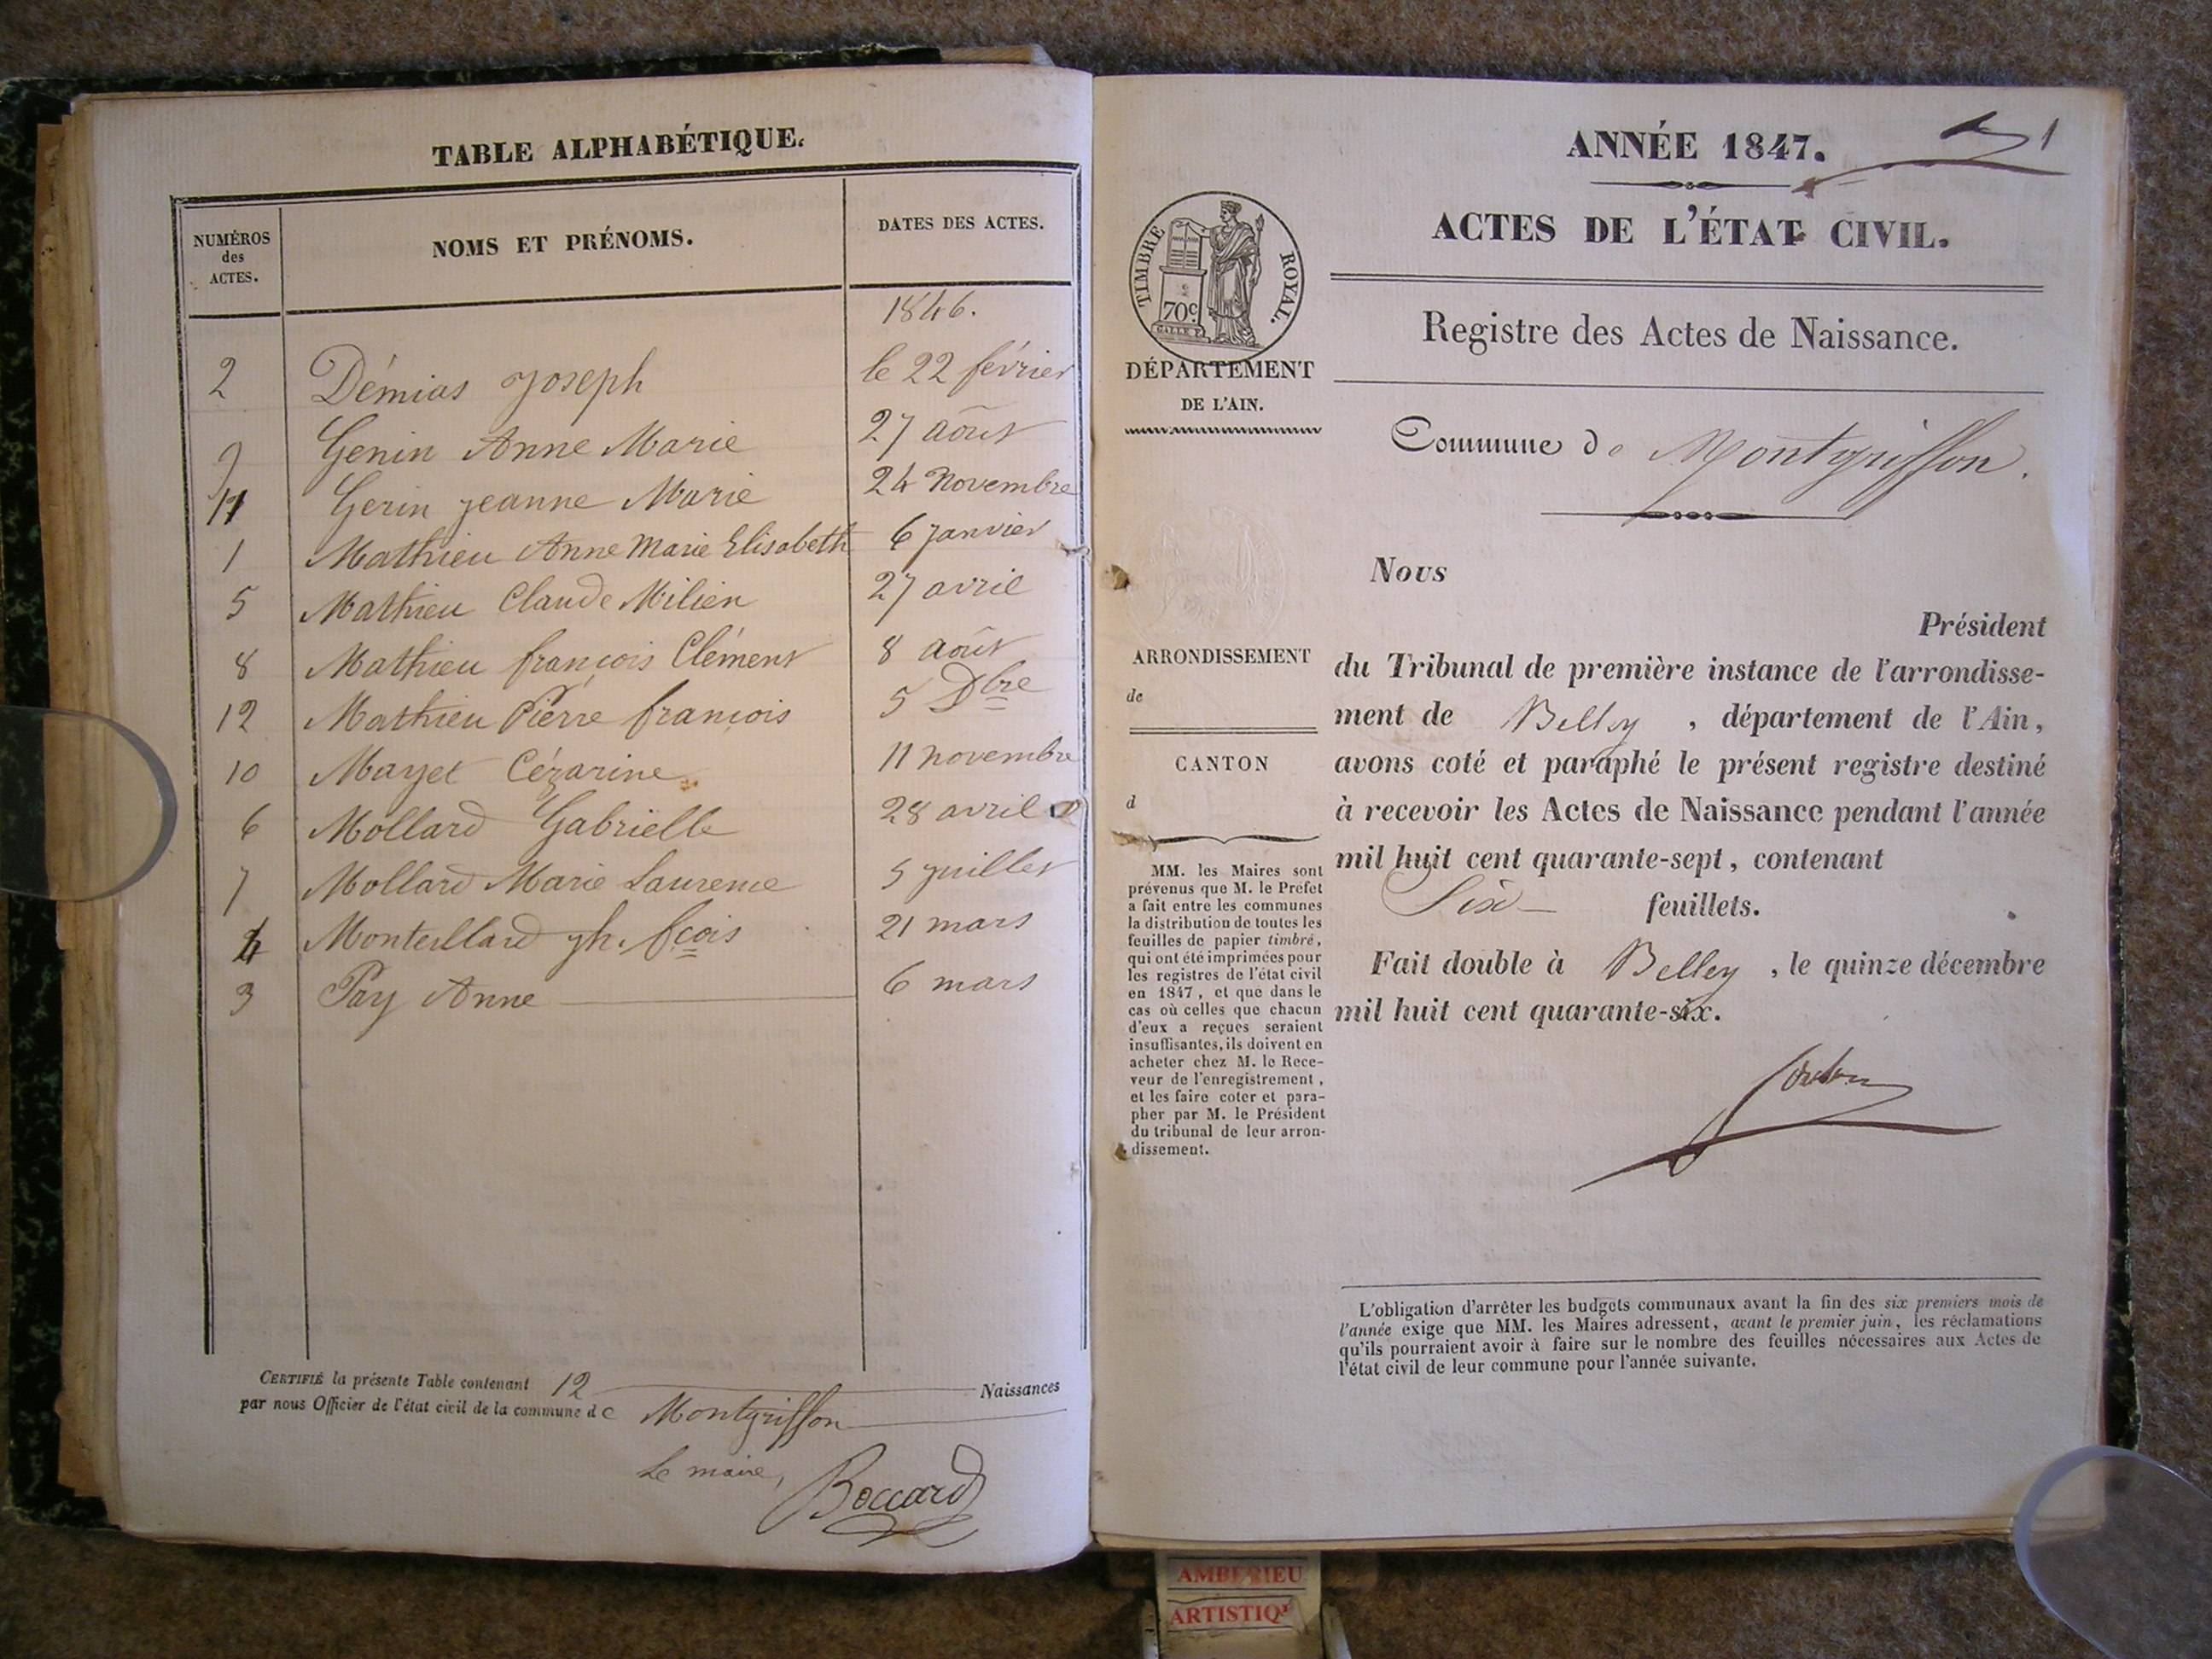 TABLE ALPHABÉTIQUE.
NUMÉROS des ACTES.
NOMS ET PRÉNOMS.
DATES DES ACTES.
1846.
2 Démias Joseph le 22 février
9 Genin Anne Marie 27 août
11 Gerin Jeanne Marie 24 Novembre
1 Mathieu Anne Marie Elisabeth 6 Janvier
5 Mathieu Claude Milien 27 avril
8 Mathieu françois Clément 8 août
12 Mathieu Pierre françois 5 Dbre
10 Mayet Cézarine 11 novembre
6 Mollard Gabrielle 28 avril
7 Mollard Marie Laurence 5 Juillet
4 Monteillard jh. fcois 21 mars
3 Pay Anne 6 mars
CERTIFIÉ la présente Table contenant 12 Naissances
par nous Officier de l'état civil de la commune de Montgriffon
Le maire,
Boccard
ANNÉE 1847.
1
ACTES DE L'ÉTAT CIVIL.
Registre des Actes de Naissance.
TIMBRE ROYAL.
70c
DÉPARTEMENT
DE L'AIN.
Commune de Montgriffon.
Nous
Président
du Tribunal de première instance de l'arrondisse-
ment de Belley, département de l'Ain,
avons coté et paraphé le présent registre destiné
à recevoir les Actes de Naissance pendant l'année
mil huit cent quarante-sept, contenant
Six feuillets.
Fait double à Belley, le quinze décembre
mil huit cent quarante-six.
ARRONDISSEMENT
de
CANTON
d
MM. les Maires sont
prévenus que M. le Préfet
a fait entre les communes
la distribution de toutes les
feuilles de papier timbré,
qui ont été imprimées pour
les registres de l'état civil
en 1847, et que dans le
cas où celles que chacun
d'eux a reçues seraient
insuffisantes, ils doivent en
acheter chez M. le Rece-
veur de l'enregistrement,
et les faire coter et para-
pher par M. le Président
du tribunal de leur arron-
dissement.
L'obligation d'arrêter les budgets communaux avant la fin des six premiers mois de
l'année exige que MM. les Maires adressent, avant le premier juin, les réclamations
qu'ils pourraient avoir à faire sur le nombre des feuilles nécessaires aux Actes de
l'état civil de leur commune pour l'année suivante.
AMBERIEU
ARTISTIQ